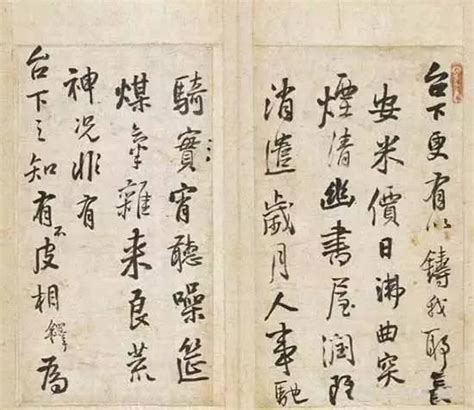 台下更有以鑄我耶長
安米價日沸曲突
煙清幽書屋潤
消遣歲月人事馳
騎實宵聽噪筵
煤氣雜来良荒
神况非有
台下之知有不皮相釋為